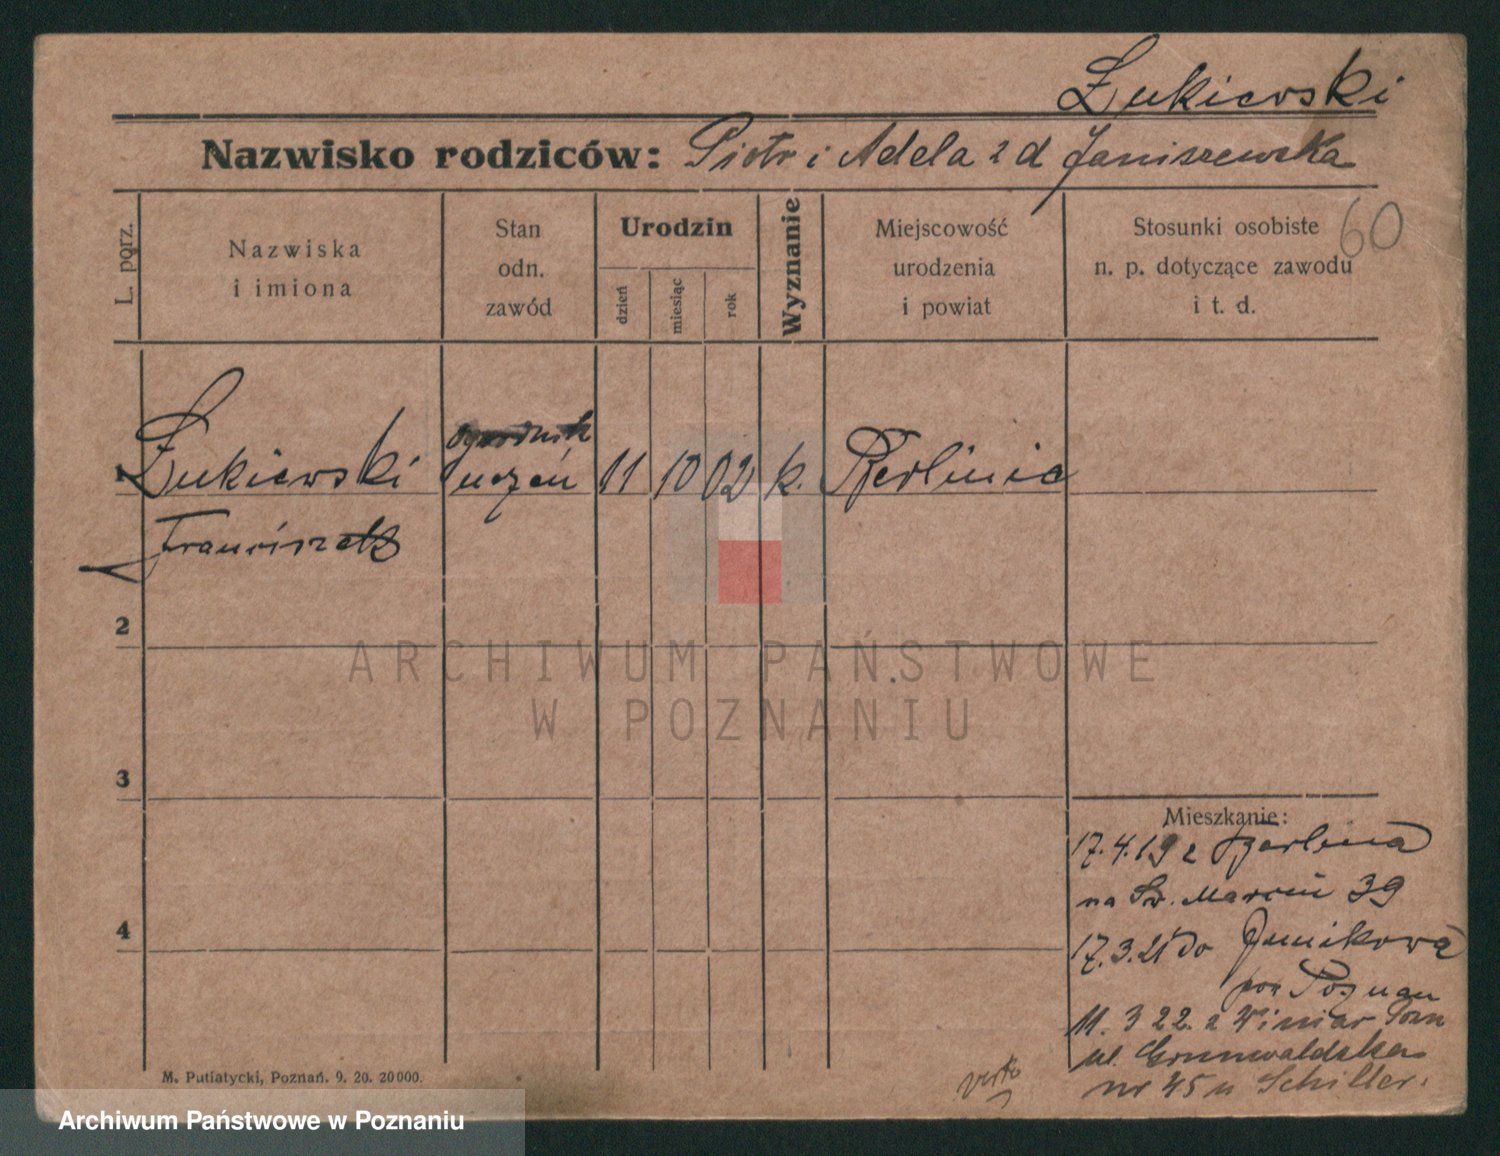 Żukiewski
Nazwisko rodziców: Piotr i Adela z d Janiszewska
60
L. porz.
Nazwiska
i imiona
Stan
odn.
zawód
Urodzin
dzień
miesiąc
rok
Wyznanie
Miejscowość
urodzenia
i powiat
Stosunki osobiste
n. p. dotyczące zawodu
i t. d.
ogrodnik
1 Żukiewski uczeń 11 10 02 k. Berlinie
Franciszek
2
ARCHIWUM PAŃSTWOWE
W POZNANIU
3
Mieszkanie:
17.4.19 z Berlina
na Św. Marcin 39
4
17.3.21 do Junikowa
pow Poznan
11. 3 22. z Winiar Pozn
ul. Grunwaldzka
nr 45 u Schiller.
M. Putiatycki, Poznań. 9. 20. 20000.
Archiwum Państwowe w Poznaniu